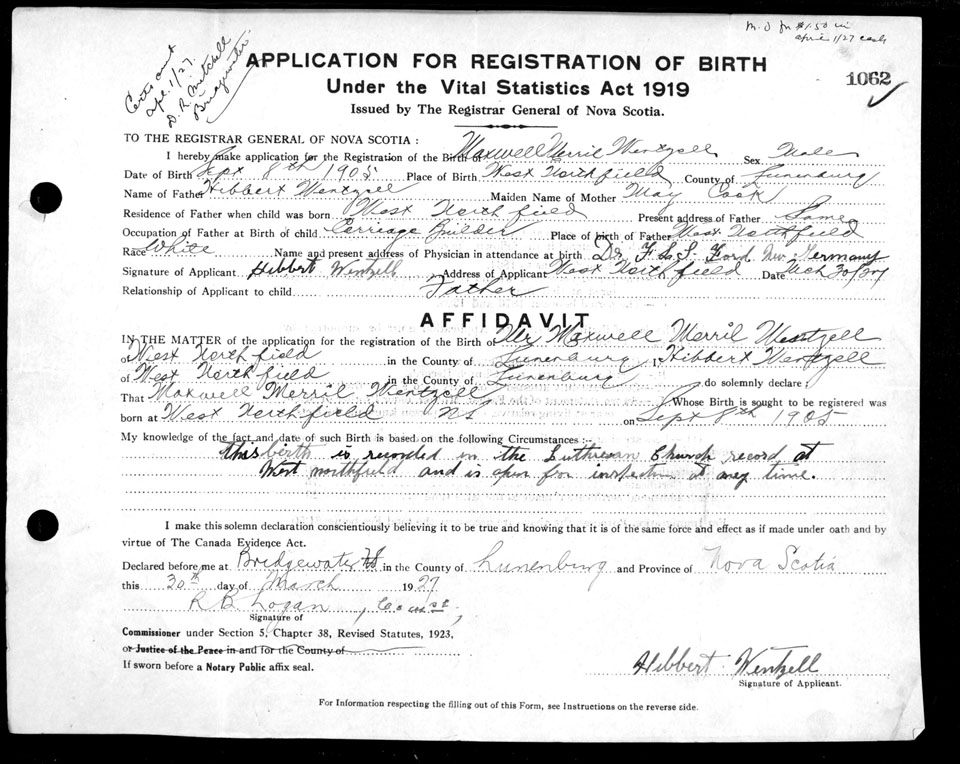 M.O for $1.50 in
april 1/27 cash
Certs sent
apl. 1/27.
D. R. Mitchell
Bridgewater
APPLICATION FOR REGISTRATION OF BIRTH
Under the Vital Statistics Act 1919
1062
Issued by The Registrar General of Nova Scotia.
TO THE REGISTRAR GENERAL OF NOVA SCOTIA :
I hereby make application for the Registration of the Birth of Maxwell Merril Wentzell Sex Male
Date of Birth Sept 8th 1905 Place of Birth West Northfield County of Lunenburg
Name of Father Hibbert Wentzell Maiden Name of Mother May Cook
Residence of Father when child was born West Northfield Present address of Father Same
Occupation of Father at Birth of child Carriage Builder Place of birth of Father West Northfield
Race White Name and present address of Physician in attendance at birth Dr F. S. Ford New Germany
Signature of Applicant Hibbert Wentzell Address of Applicant West Northfield Date Mch 30/27
Relationship of Applicant to child Father
AFFIDAVIT
IN THE MATTER of the application for the registration of the Birth of Mr Maxwell Merril Wentzell
of West Northfield in the County of Lunenburg I, Hibbert Wentzell
of West Northfield in the County of Lunenburg do solemnly declare ;
That Maxwell Merril Wentzell Whose Birth is sought to be registered was
born at West Northfield NS on Sept 8th 1905
My knowledge of the fact and date of such Birth is based on the following Circumstances :-
this birth is recorded in the Lutheran Church record at
West northfield and is open for inspection at any time.
I make this solemn declaration conscientiously believing it to be true and knowing that it is of the same force and effect as if made under oath and by
virtue of The Canada Evidence Act.
Declared before me at Bridgewater in the County of Lunenburg and Province of Nova Scotia
this 30th day of March 1927
R B Logan,
Signature of
Commissioner under Section 5, Chapter 38, Revised Statutes, 1923,
or Justice of the Peace in and for the County of
If sworn before a Notary Public affix seal.
Hibbert Wentzell
Signature of Applicant.
For Information respecting the filling out of this Form, see Instructions on the reverse side.